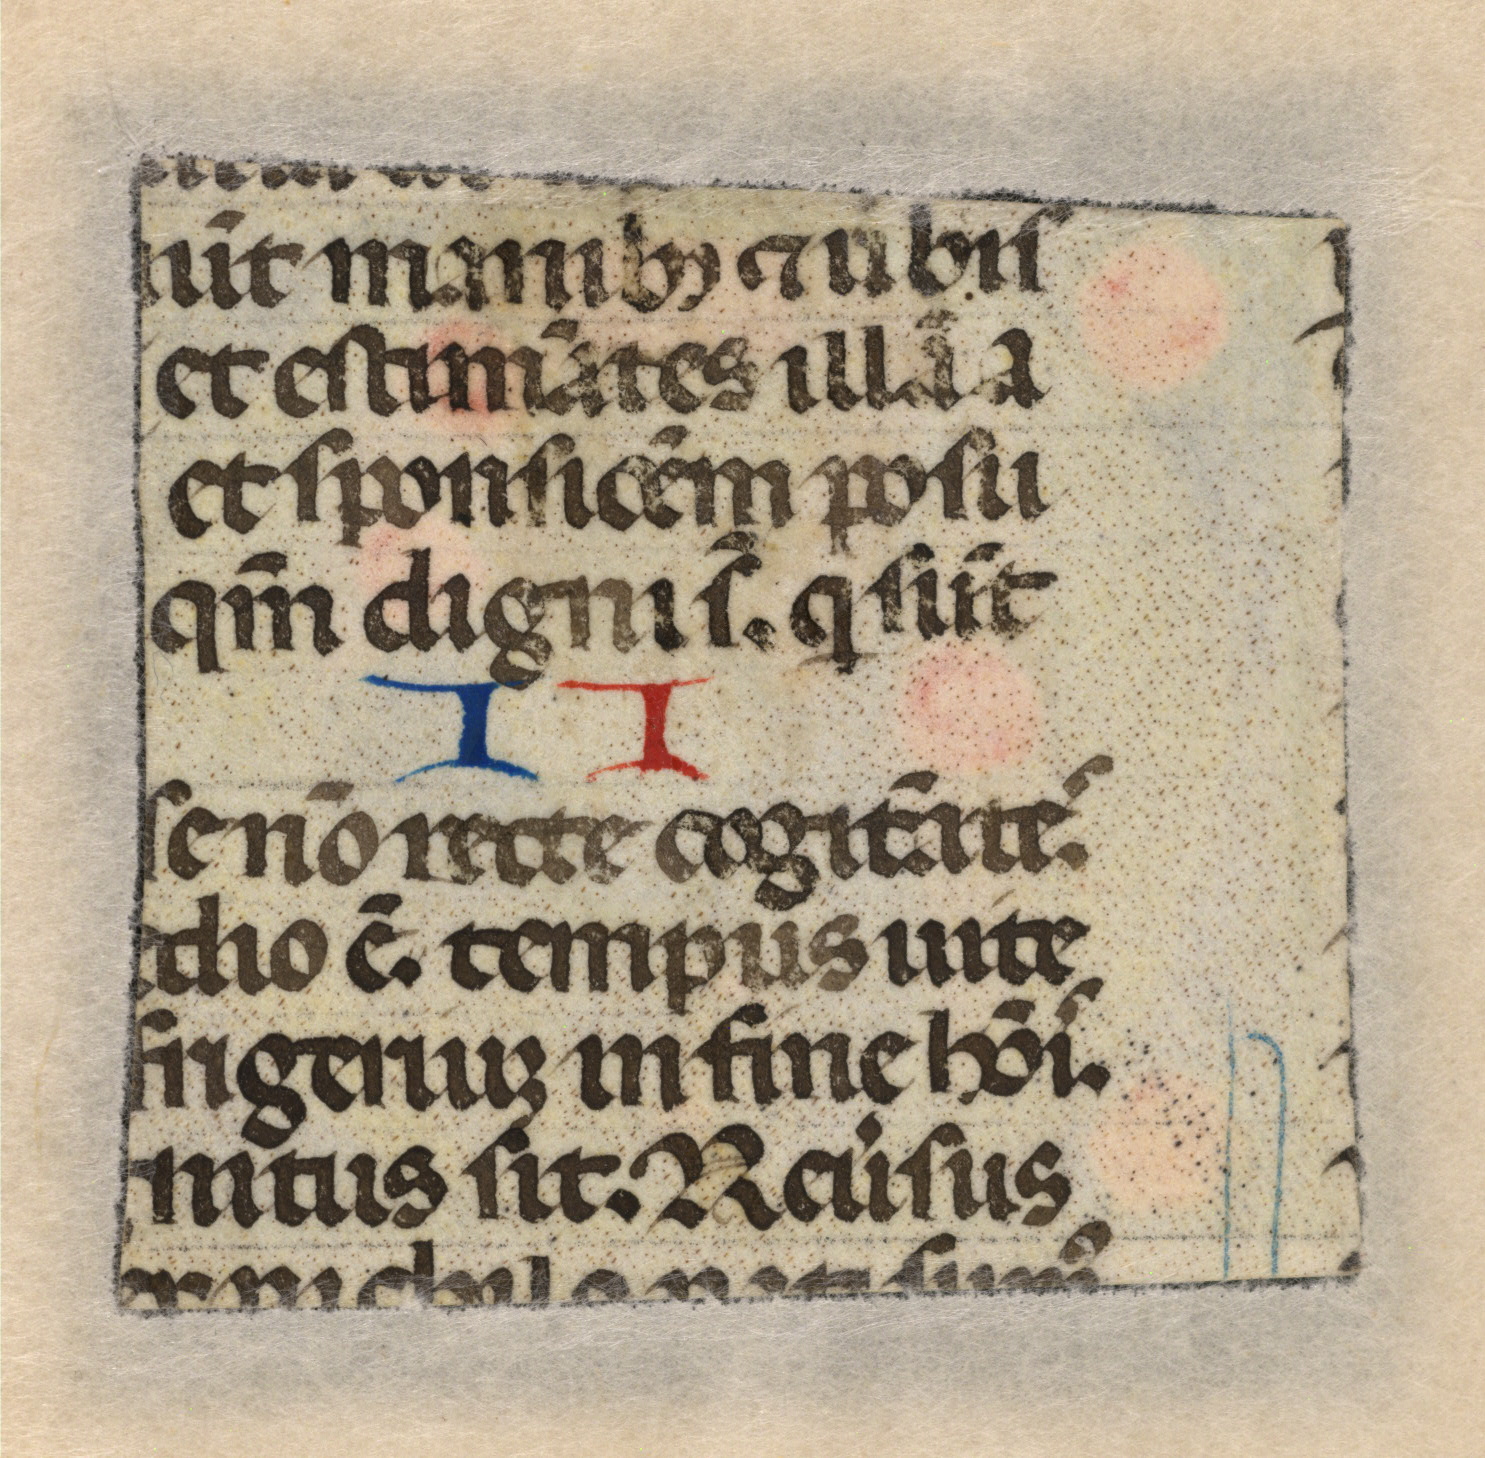 uīt manibꝫ ⁊ ubis
et estimātes illā a
et sponsiōem posu
qm̄ digni s̄. q sūt
II
se nō recte cogitātes.
dio ē. tempus uite
frigeriuꝫ in fine hōis.
nitus sit. Reūsus